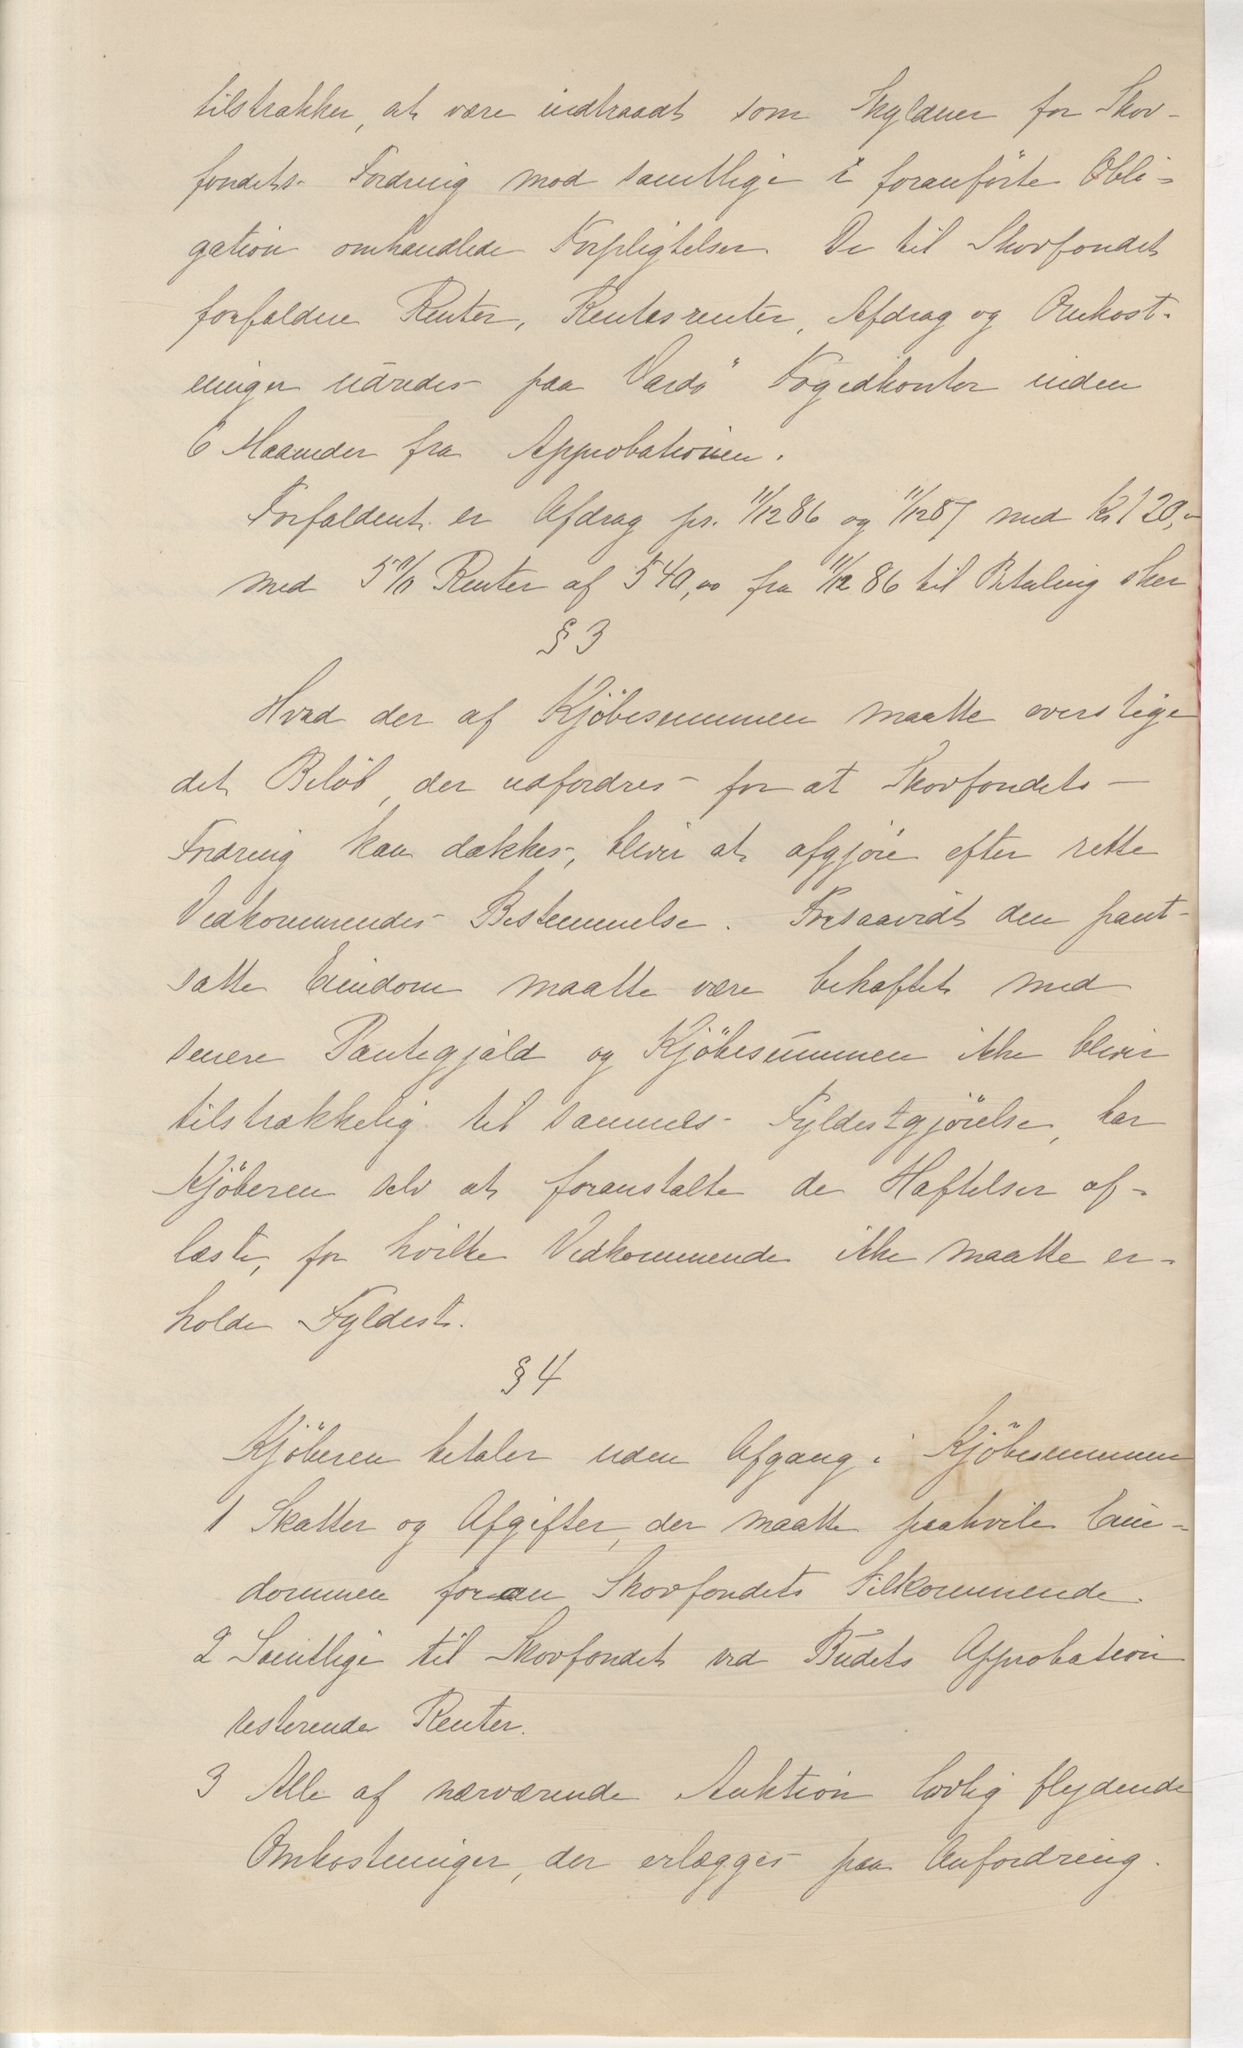 tilstrækker, at være indtraadt som Skyldner for Skov-
fondets Fordring mod samtlige i foranførte Obli-
gation omhandlede Forpligtelser. De til Skovfondet
forfaldne Renter, Rentesrenter, Afdrag og Omkost-
ninger udredes paa Vardö Fogedkontor inden
6 Maaneder fra Approbationen.
Forfaldent er Afdrag pr. 11/12 86 og 11/12 87 med Kr 120,-
med 5% Renter af 540,00 fra 11/12 86 til Betaling sker
§ 3
Hvad der af Kjöbesummen maatte overstige
det Belöb, der udfordres for at Skovfondets
Fordring kan dækkes, bliver at afgjöre efter rette
Vedkommendes Bestemmelse. Forsaavidt den pant-
satte Eiendom maatte være behæftet med
senere Pantegjæld og Kjöbesummen ikke bliver
tilstrækkelig til sammes Fyldestgjörelse, har
Kjöberen selv at foranstalte de Hæftelser af-
læste, for hvilke Vedkommende ikke maatte er-
holde Fyldest.
§ 4
Kjöberen betaler uden Afgang i Kjöbesummen
1 Skatter og Afgifter, der maatte paahvile Eien-
dommen foran Skovfondets Tilkommende.
2 Samtlige til Skovfondet ved Budets Approbation
resterende Renter.
3 Alle af nærværende Auktion lovlig flydende
Omkostninger, der erlægges paa Anfordring.